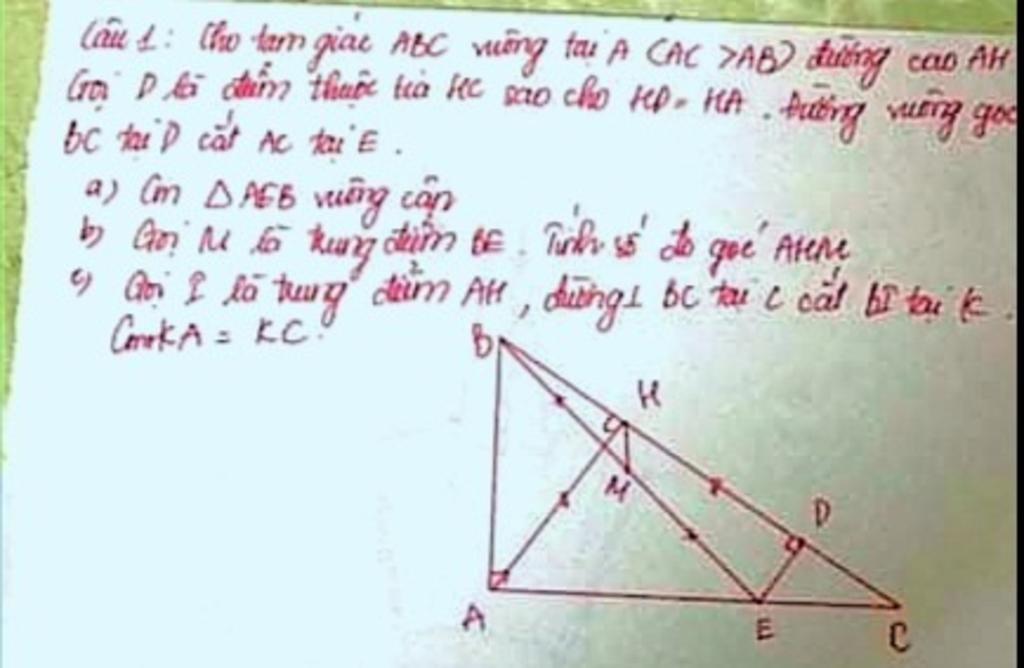 Câu 1: Cho tam giác ABC vuông tại A (AC > AB) đường cao AH
Gọi D là điểm thuộc tia HC sao cho HD = HA. Đường vuông góc
BC tại D cắt AC tại E.
a) Cm Δ AEB vuông cân
b) Gọi M là trung điểm BE. Tính số đo góc AHM
c) Gọi I là trung điểm AH, đường ⊥ BC tại C cắt BI tại K.
Cmr KA = KC.
B
H
M
D
A
E
C